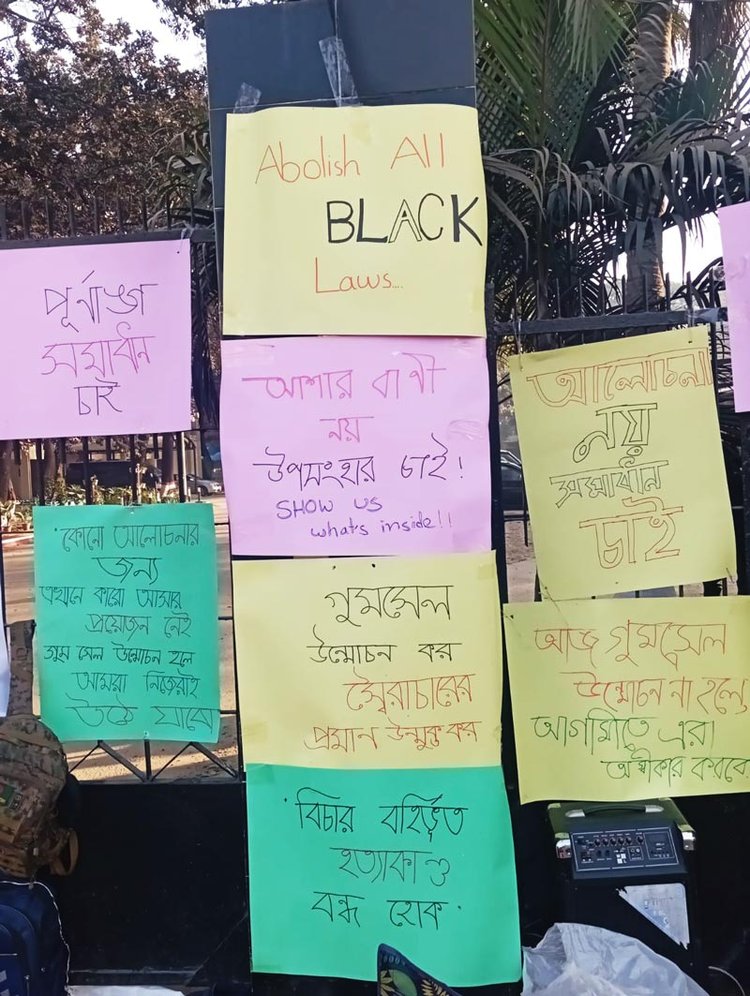 Abolish All
BLACK
Laws...
পূর্নাঙ্গ
সমাধান
চাই
আশার বাণী
নয়
উপসংহার চাই!
SHOW US
what's inside!!
আলোচনা
নয়
সমাধান
চাই
কোনো আলোচনার
জন্য
এখানে কারো আসার
প্রয়োজন নেই
গুম সেল উন্মোচন হলে
আমরা নিজেরাই
উঠে যাবো
গুমসেল
উন্মোচন কর
স্বৈরাচারের
প্রমান উন্মুক্ত কর
আজ গুমসেল
উন্মোচন না হলে,
আগামিতে এরা
অস্বীকার করবে
বিচার বহির্ভূত
হত্যাকাণ্ড
বন্ধ হোক